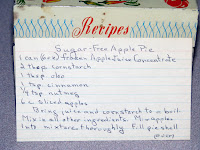 Recipes
Sugar-Free Apple Pie
1 can (6oz) frozen Apple Juice Concentrate
2 tbsp cornstarch
1 tbsp oleo
1 tsp cinnamon
1/4 tsp nutmeg
6 c sliced apples
Bring juice and cornstarch to a boil.
Mix in all other ingredients. Mix apples
into mixture thoroughly. Fill pie shell